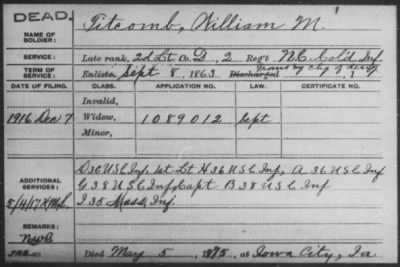 DEAD.
Titcomb, William M.
NAME OF SOLDIER:
SERVICE:
Late rank, 2d Lt. Co. D, 2 Reg't N.C. Cold Inf.
TERM OF SERVICE:
Enlisted Sept 8, 1863 Discharged , 1
DATE OF FILING. CLASS. APPLICATION NO. LAW. CERTIFICATE NO.
Invalid,
1916 Dec 7 Widow, 1089012 Sept
Minor,
ADDITIONAL SERVICES:
D 36 U S C Inf, 1st Lt. H 36 U S C Inf, A 36 U S C Inf
G 38 U S C Inf, Capt B 38 U S C Inf
I 35 Mass, Inf.
REMARKS:
Died May 5, 1875, at Iowa City, Ia